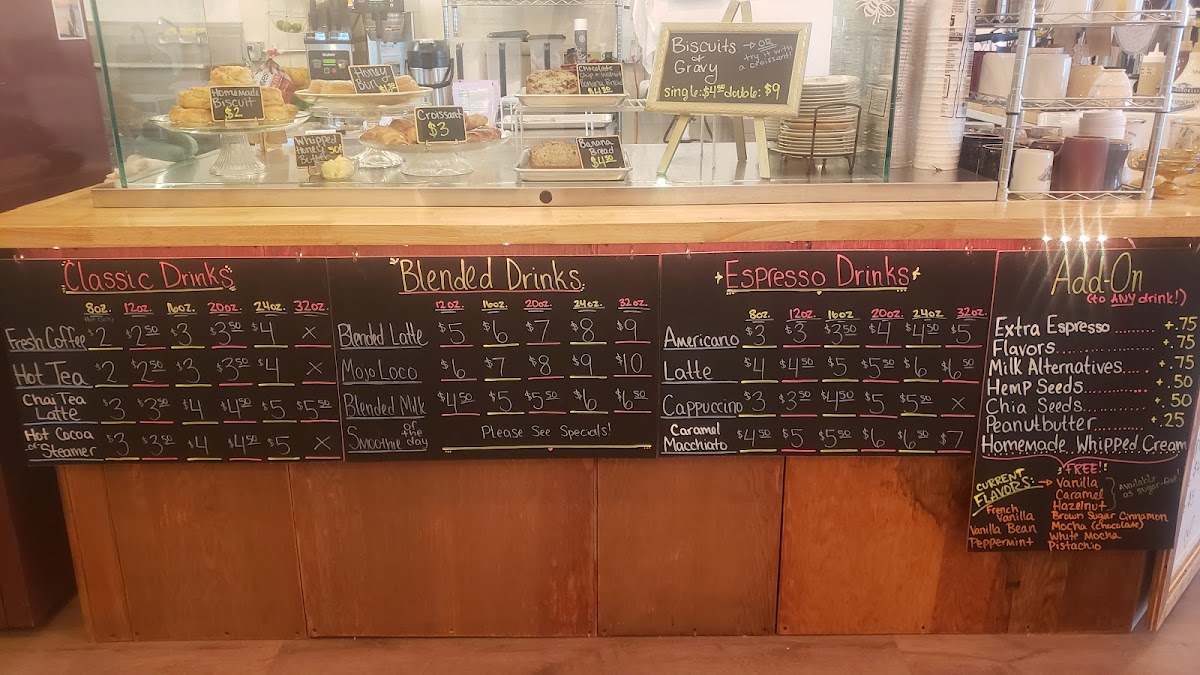 Homemade
Biscuit
$2
Honey
Bun
Croissant
$3
Whipped
Honey 50¢
Butter
Chocolate
Chip + Walnut
Banana Bread
Banana
Bread
Biscuits → OR
+ try it with
Gravy a croissant!
single: $4.50 double: $9
Classic Drinks
8oz. 12oz. 16oz. 20oz. 24oz. 32oz.
Fresh Coffee $2 $2.50 $3 $3.50 $4 x
Hot Tea $2 $2.50 $3 $3.50 $4 x
Chai Tea
Latte $3 $3.50 $4 $4.50 $5 $5.50
Hot Cocoa
or Steamer $3 $3.50 $4 $4.50 $5 x
Blended Drinks
12oz. 16oz. 20oz. 24oz. 32oz.
Blended Latte $5 $6 $7 $8 $9
Mojo Loco $6 $7 $8 $9 $10
Blended Milk $4.50 $5 $5.50 $6 $6.50
Smoothie of the day Please See Specials!
Espresso Drinks
8oz. 12oz. 16oz. 20oz. 24oz 32oz.
Americano $3 $3 $3.50 $4 $4.50 $5
Latte $4 $4.50 $5 $5.50 $6 $6.50
Cappuccino $3 $3.50 $4.50 $5 $5.50 x
Caramel
Macchiato $4.50 $5 $5.50 $6 $6.50 $7
Add-On
(to ANY drink!)
Extra Espresso ......... +.75
Flavors .................. +.75
Milk Alternatives..... +.75
Hemp Seeds............ +.50
Chia Seeds............. +.50
Peanutbutter.......... +.25
Homemade Whipped Cream
FREE!
CURRENT
FLAVORS: → Vanilla
Caramel
Hazelnut
Available
as sugar-free!
French
Vanilla
Brown Sugar Cinnamon
Vanilla Bean
Mocha (chocolate)
White Mocha
Peppermint
Pistachio